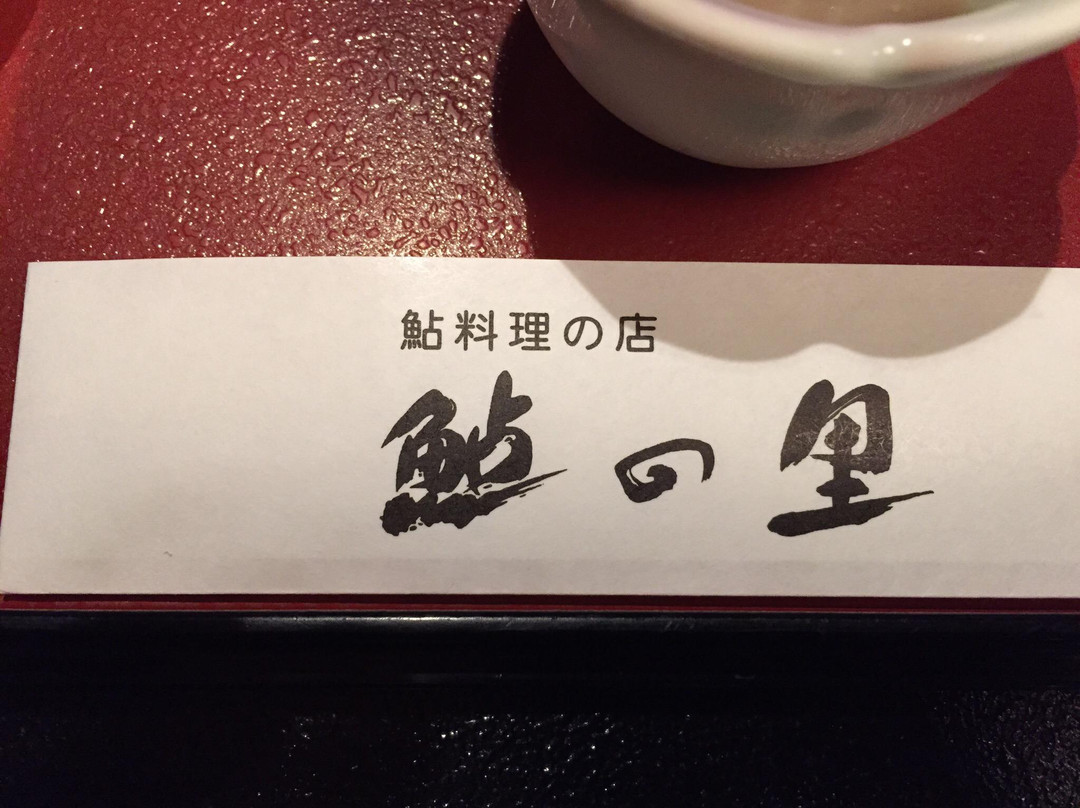 鮎料理の店
鮎の里